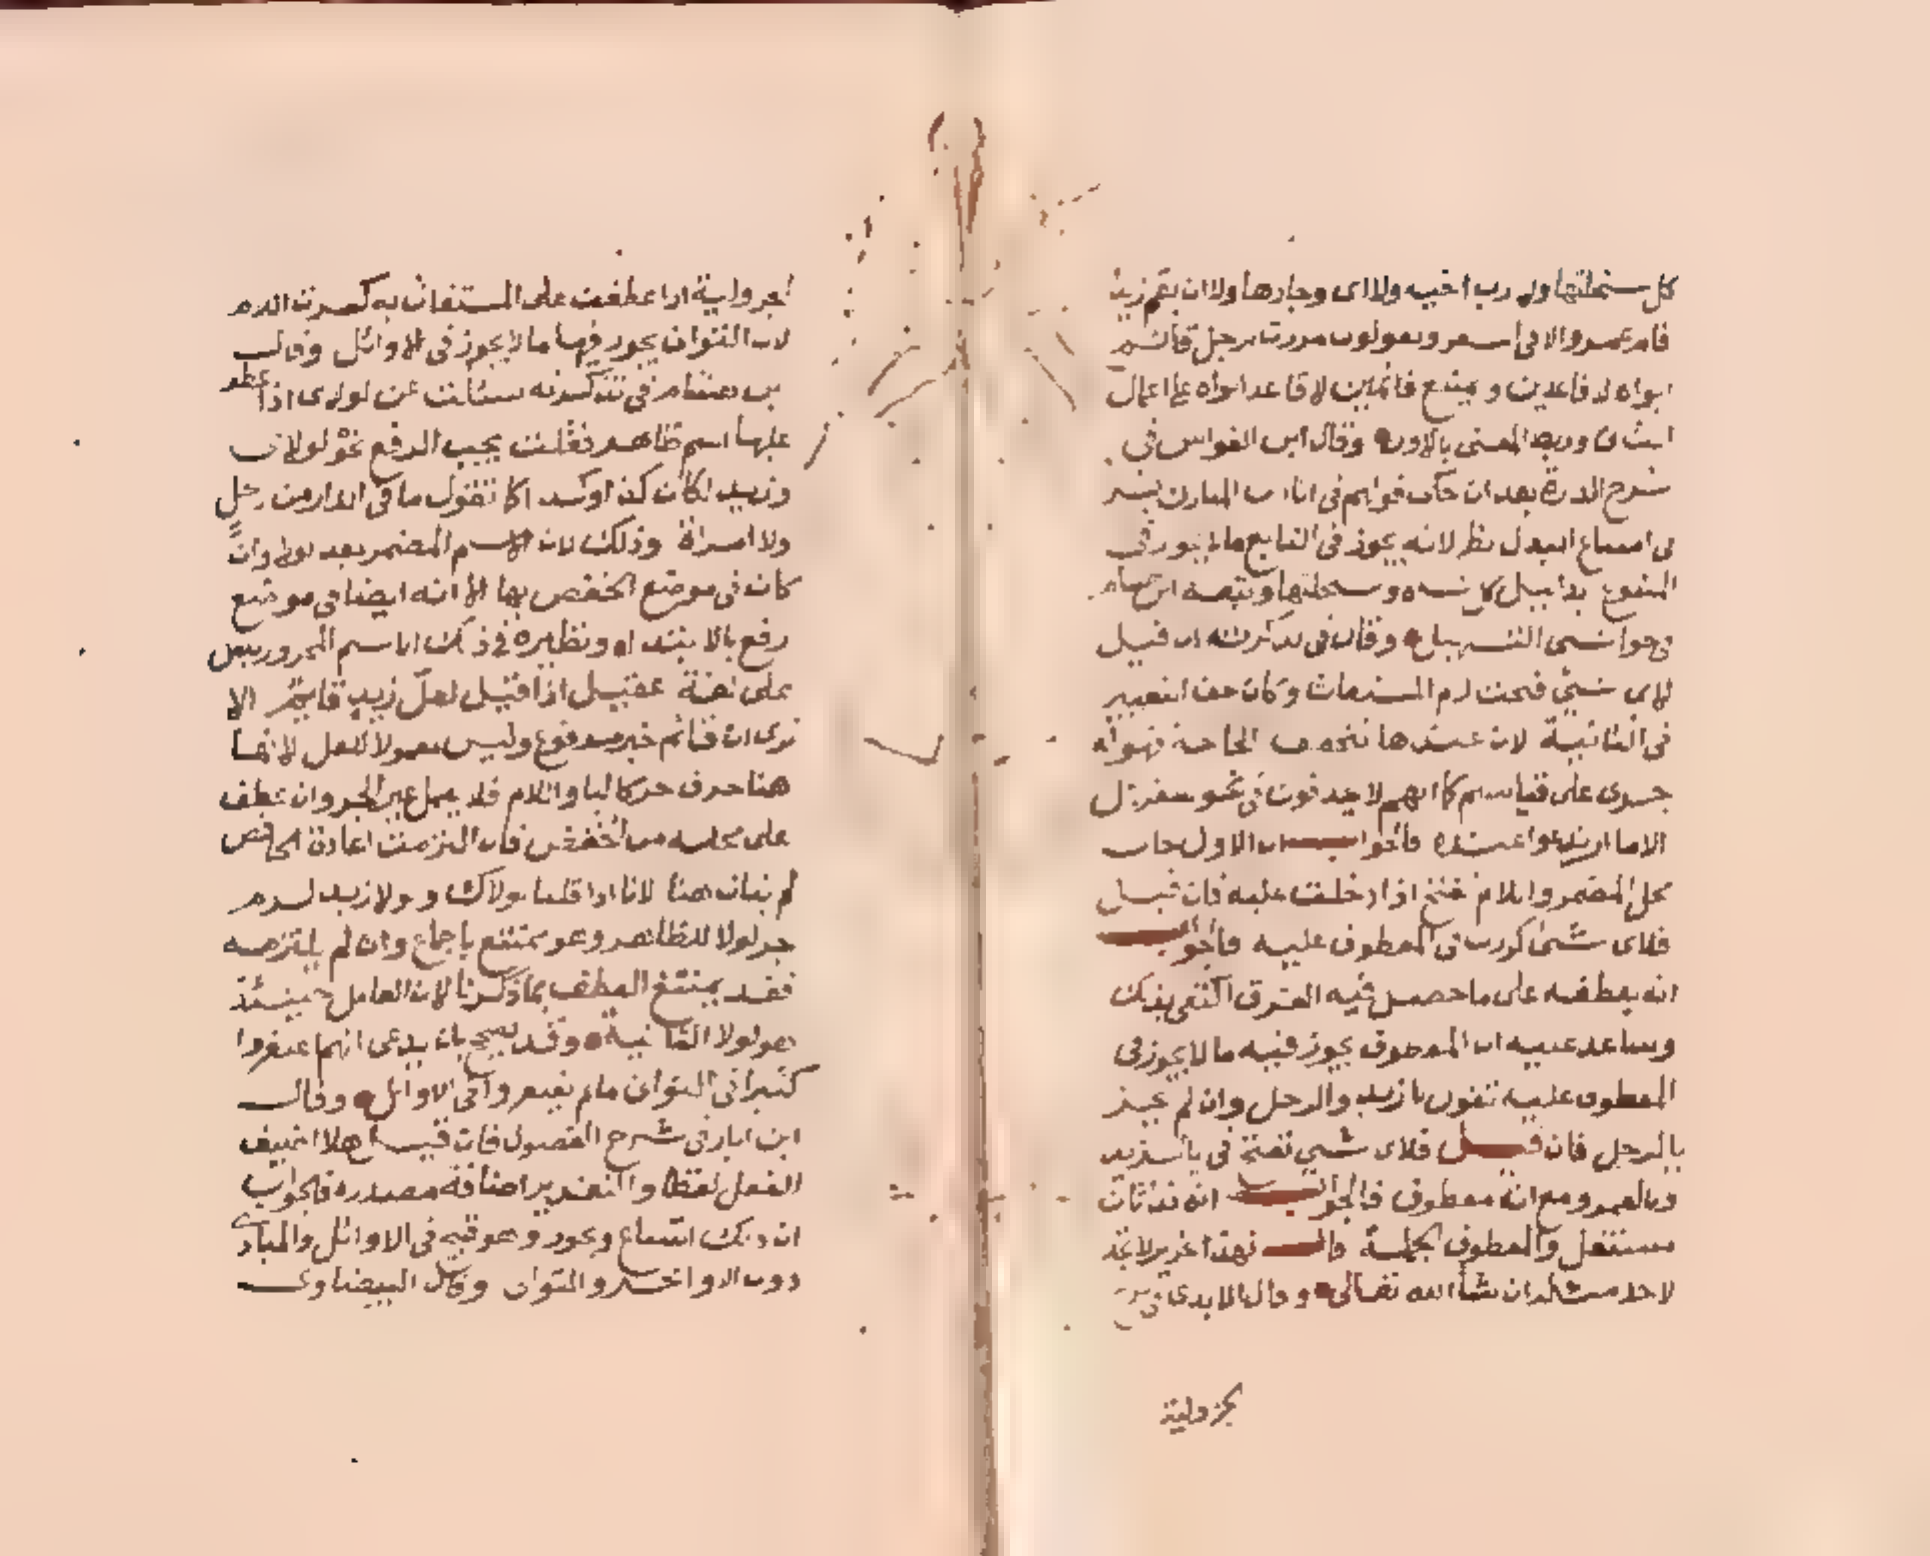 كل سخلتها ولا رب اخيه ولا اى وجارها ولا ان يقم زيد
قام عمرو الا فى الشعر ويقولون مررت برجل قائم
ابواه لا قاعدين ويمتنع قائمين لا قاعد ابواه على اعمال
الثانى وربط المعنى بالاول وقال ابن القواس فى
شرح الدرة بعد ان حكى قولهم فى انا ابن التارك بشر
فى امتناع البدل نظر لانه يجوز فى التابع ما لا يجوز فى
المتبوع بدليل كل شاة وسخلتها وتبعه ابن هشام
فى حواشى التسهيل وقال فى تذكرته ان قيل
لاى شئ فتحت لام المستغاث وكان حق التغيير
فى الثانية لان عندها تتحقق الحاجة فهو
جرى على قياسهم كما انهم لا يحذفون فى نحو سفرجل
الا ما ارتدعوا عنده فالجواب ان الاول حاب
محل المضمر واللام تفتح اذا دخلت عليه فان قيل
فلاى شئ كسرت فى المعطوف عليه فالجواب
انه بعطفه على ما حصل فيه الفرق اكتفى بذلك
وساعد عليه ان المعطوف يجوز فيه ما لا يجوز فى
المعطوف عليه تقول يا زيد والرجل وان لم يجز
يا الرجل فان قيل فلاى شئ تفتح فى يا لزيد
ويا لعمرو مع انه معطوف فالجواب انه نداء ثان
مستقل والمعطوف الجملة قال فهذا تحرير لا تجد
لاحد مثله ان شاء الله تعالى وقال الابدى فى شرح
الجزولية
الجزولية اذا عطفت على المستغاث به كسرت اللام
لان الثوان يجوز فيها ما لا يجوز فى الاوائل وقال
ابن هشام فى تذكرته سئلت عن لولاى اذا عطف
عليها اسم ظاهر فقلت يجب الرفع نحو لولاك
وزيد لكان كذا وكذا كما تقول ما فى الدار من رجل
ولا امراة وذلك لان الاسم المضمر بعد لولا وان
كان فى موضع الخفض بها الا انه ايضا فى موضع
رفع بالابتداء ونظيره فى ذلك الاسم المجرور بلعل
على لغة عقيل اذا قيل لعل زيد قائم الا
ترى ان قائم خبر مرفوع وليس معمولا للعل لانها
هنا حرف جر كالباء واللام فلا يعمل غير الجر وان عطف
على محله من الخفض فان التزمت اعادة الخافض
لم يتات هنا لانا اذا قلنا لولاك ولولا زيد لزم
جر لولا للظاهر وهو ممتنع باجماع وان لم يلتزمه
فقد يمتنع العطف بما ذكرنا لان العامل حينئذ
هو لولا الثانية وقد يصح بان يدعى انهم اغتفروا
كثيرا فى الثوانى ما لم يغتفروا فى الاوائل وقال
ابن اياز فى شرح الفصول فان قيل هلا اضيف
الفعل لفظا والتقدير اضافة مصدره فالجواب
ان ذلك اتساع وتجوز وهو قبيح فى الاوائل والمبادى
دون الاواخر والثوانى وقال البيضاوى